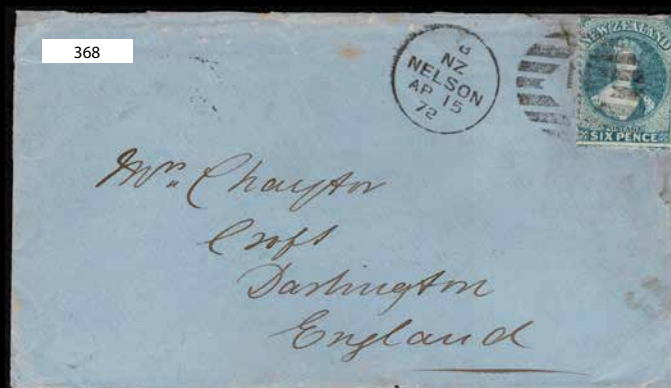 368
8
NZ
NELSON
AP 15
72
NEW ZEALAND
POSTAGE
SIX PENCE
Mrs. Chaytor
Croft
Darlington
England